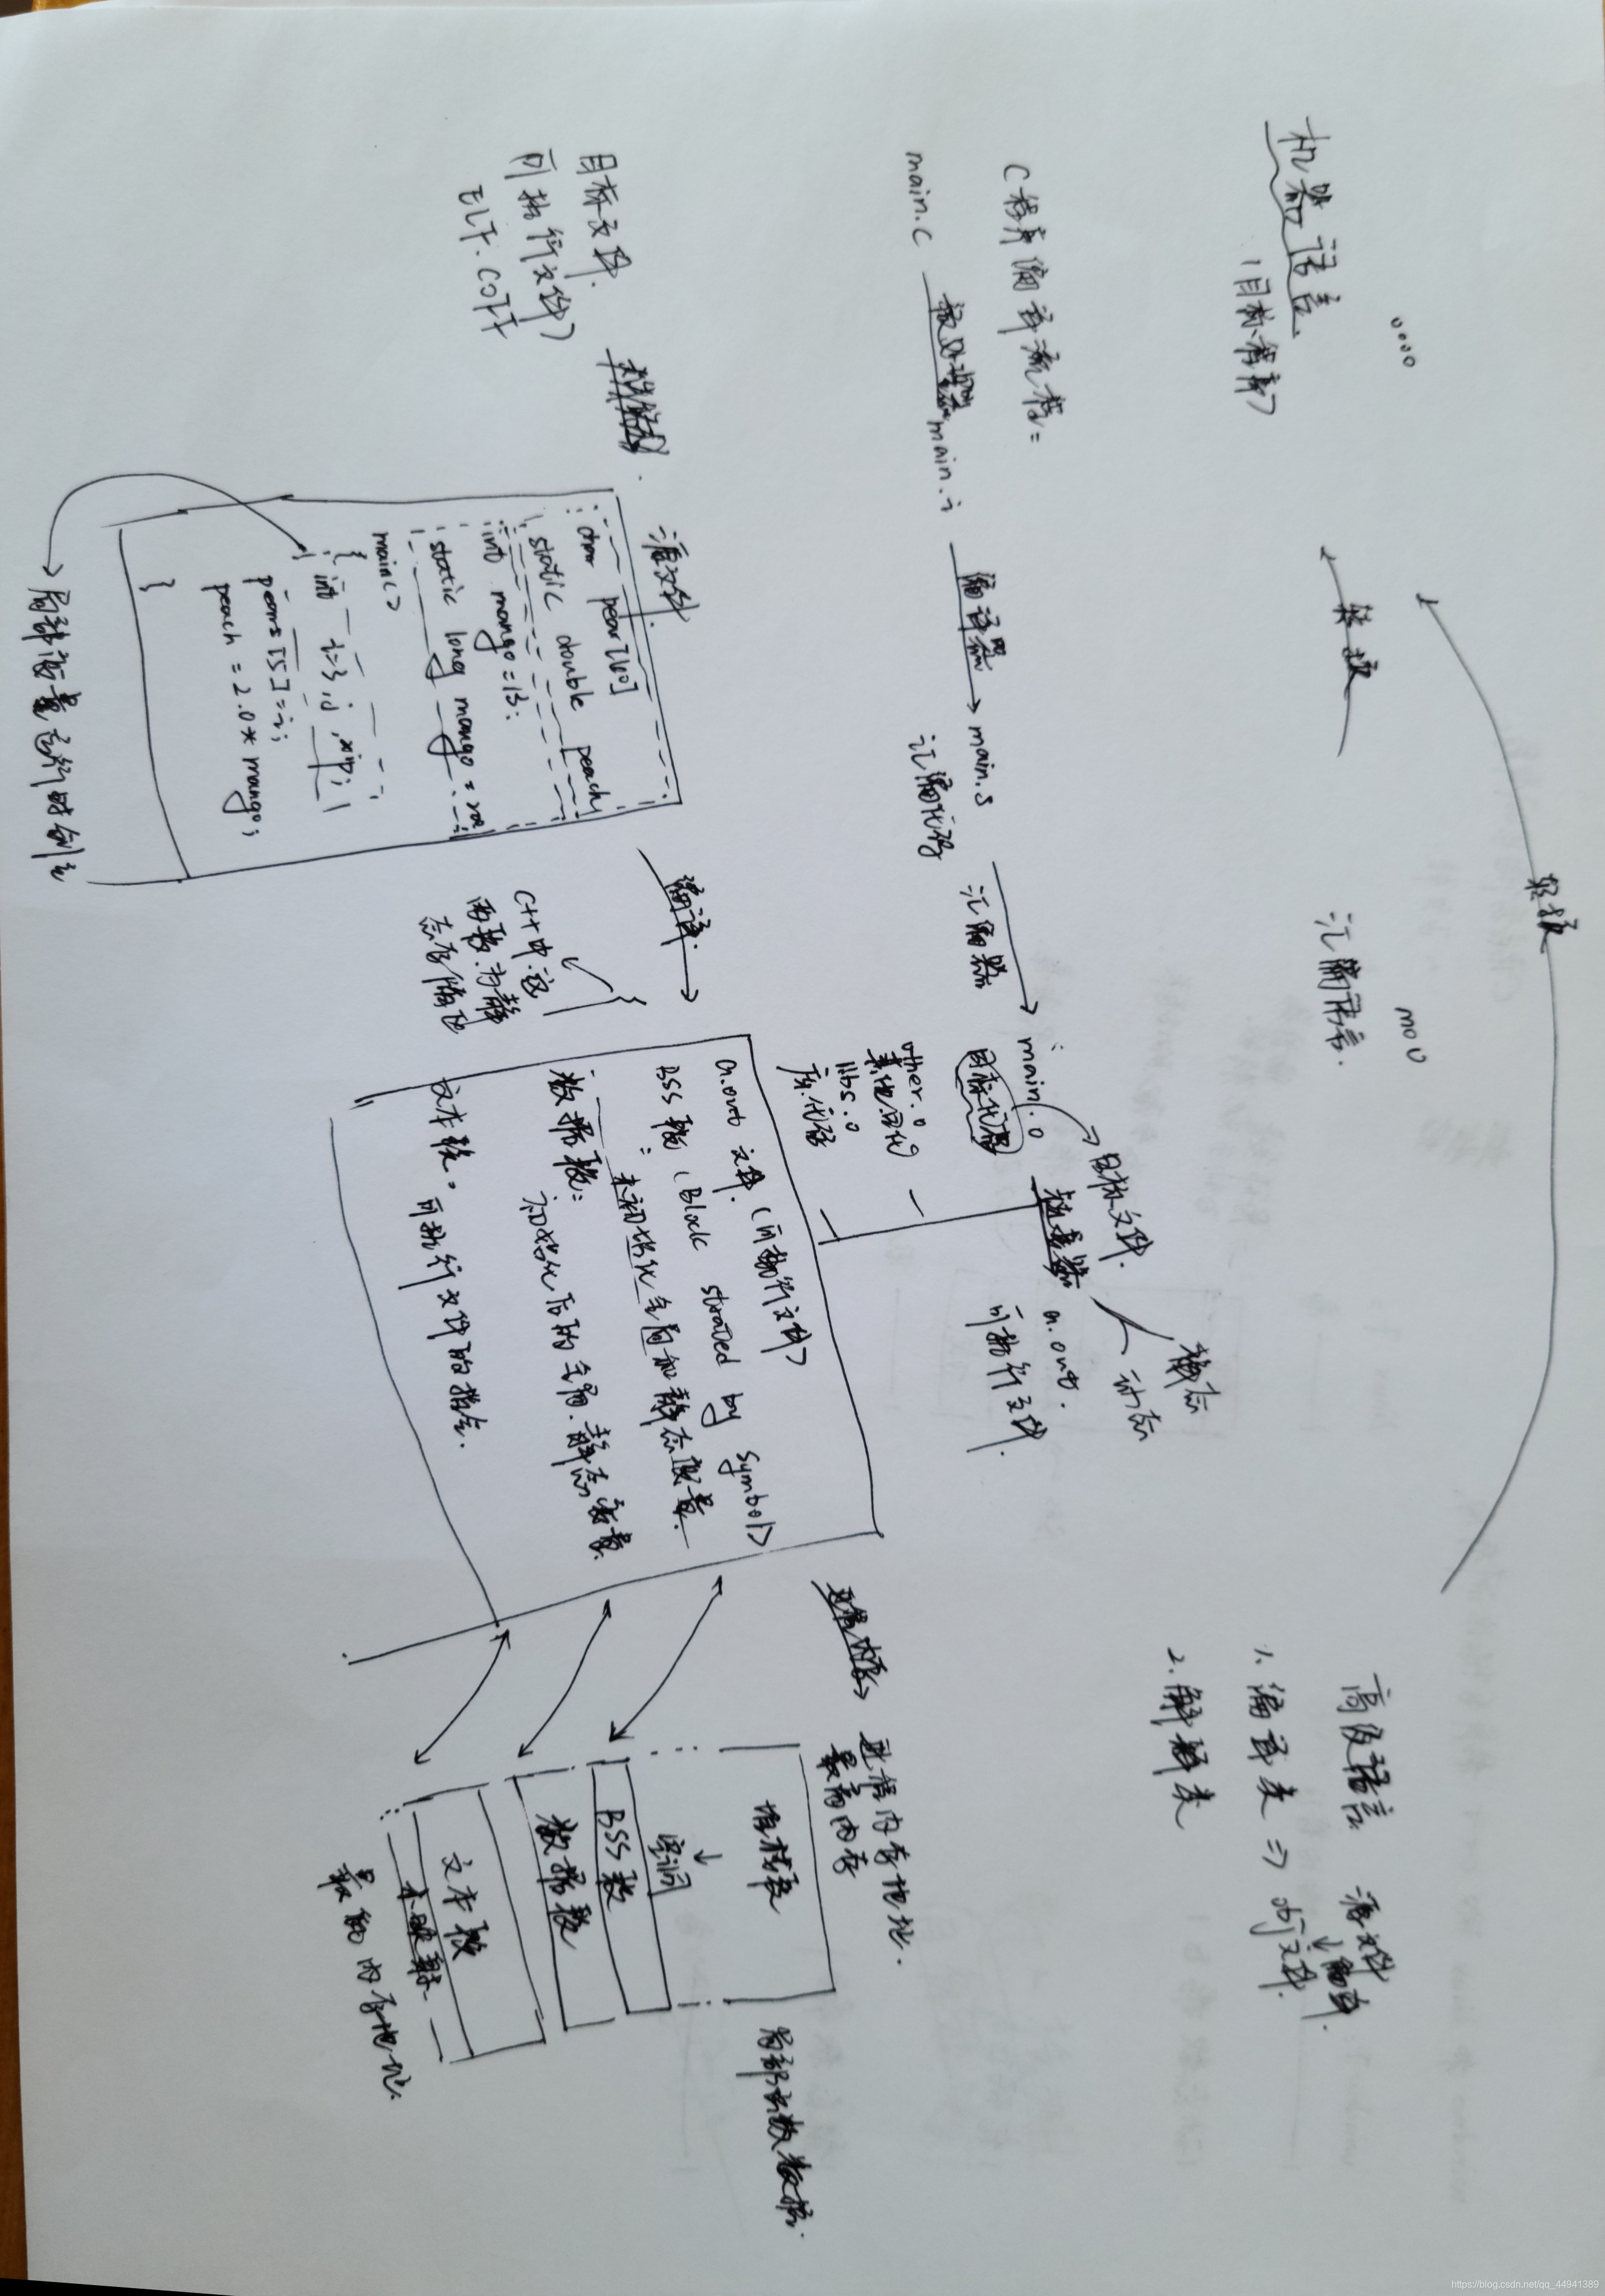 转换
机器语言
(目标程序)
转换
汇编语言.
mov
高级语言
源文件
↓编译.
1. 编译类 => obj文件.
2. 解释类
C程序编译流程=
main.c
预处理器
main.i
编译器
main.s
汇编代码
汇编器
main.o
目标代码
目标文件.
other.o
其他目代
libs.o
库代码
链接器
静态
动态
a.out.
可执行文件.
目标文件.
可执行文件)
ELF. COFF
源文件.
char pear[40]
static double peach;
int mango = 13;
static long mango = 200
main()
{ int i=3, j, *ip;
pears[5]=i;
peach = 2.0* mango;
}
局部变量运行时创建
编译.
C++中.这
两段为静
态存储区
a.out 文件. (可执行文件)
BSS段 (Block started by symbol)
未初始化全局和静态变量.
数据段:
初始化后的全局.静态变量.
文本段. 可执行文件的指令.
进程内存
进程内存地址.
最高内存
堆栈段
↓
空洞
BSS段
数据段
文本段
未映射.
最低内存地址.
局部函数数据.
https://blog.csdn.net/qq_44941389